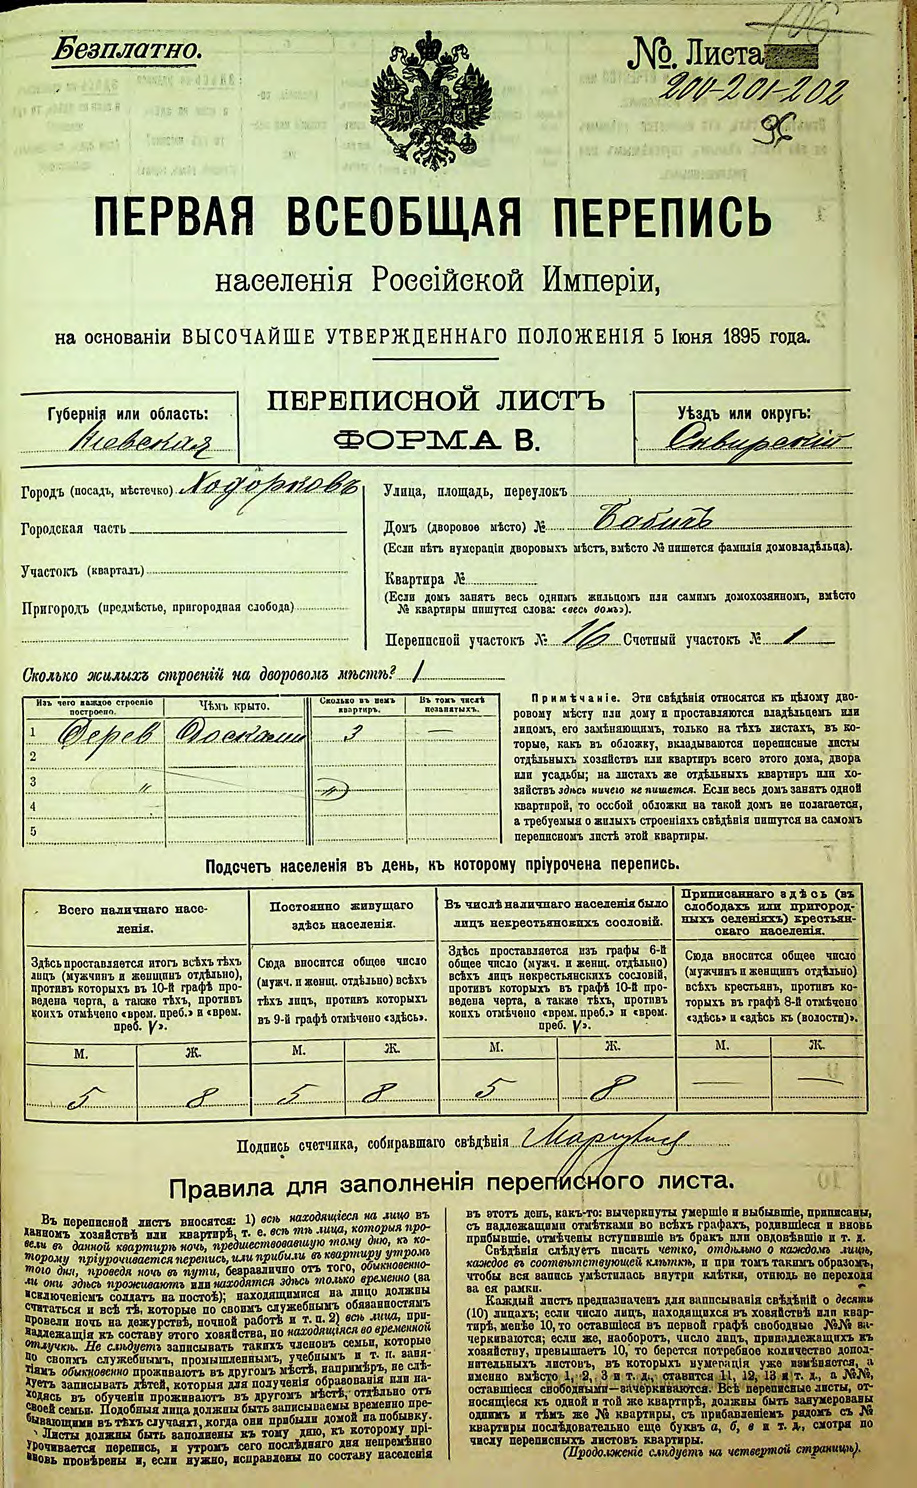 Безплатно.
№ Листа
106
200-201-202
96
ПЕРВАЯ ВСЕОБЩАЯ ПЕРЕПИСЬ
населенія Россійской Имперіи,
на основаніи ВЫСОЧАЙШЕ УТВЕРЖДЕННАГО ПОЛОЖЕНІЯ 5 Іюня 1895 года.
Губернія или область:
Кіевская
ПЕРЕПИСНОЙ ЛИСТЪ
ФОРМА В.
Уѣздъ или округъ:
Сквирскій
Городъ (посадъ, мѣстечко) Ходорковъ
Городская часть
Участокъ (кварталъ)
Пригородъ (предмѣстье, пригородная слобода)
Улица, площадь, переулокъ
Домъ (дворовое мѣсто) № Бабичъ
(Если нѣтъ нумераціи дворовыхъ мѣстъ, вмѣсто № пишется фамилія домовладѣльца).
Квартира №
(Если домъ занятъ весь однимъ жильцомъ или самимъ домохозяиномъ, вмѣсто
№ квартиры пишутся слова: «весь домъ»).
Переписной участокъ № 16 Счетный участокъ № 1
Сколько жилыхъ строеній на дворовомъ мѣстѣ? 1
Изъ чего каждое строеніе
построено.
Чѣмъ крыто.
Сколько въ немъ
квартиръ.
Въ томъ числѣ
незанятыхъ.
1 Дерев Досками 3 —
2
3 " "
4
5
Примѣчаніе. Эти свѣдѣнія относятся къ цѣлому дво-
ровому мѣсту или дому и проставляются владѣльцемъ или
лицомъ, его замѣняющимъ, только на тѣхъ листахъ, въ ко-
торые, какъ въ обложку, вкладываются переписные листы
отдѣльныхъ хозяйствъ или квартиръ всего этого дома, двора
или усадьбы; на листахъ же отдѣльныхъ квартиръ или хо-
зяйствъ здѣсь ничего не пишется. Если весь домъ занятъ одной
квартирой, то особой обложки на такой домъ не полагается,
а требуемыя о жилыхъ строеніяхъ свѣдѣнія пишутся на самомъ
переписномъ листѣ этой квартиры.
Подсчетъ населенія въ день, къ которому пріурочена перепись.
Всего наличнаго насе-
ленія.
Здѣсь проставляется итогъ всѣхъ тѣхъ
лицъ (мужчинъ и женщинъ отдѣльно),
противъ которыхъ въ 10-й графѣ про-
ведена черта, а также тѣхъ, противъ
коихъ отмѣчено «врем. преб.» и «врем.
преб. V».
М. Ж.
5 8
Постоянно живущаго
здѣсь населенія.
Сюда вносится общее число
(мужч. и женщ. отдѣльно) всѣхъ
тѣхъ лицъ, противъ которыхъ
въ 9-й графѣ отмѣчено «здѣсь».
М. Ж.
5 8
Въ числѣ наличнаго населенія было
лицъ некрестьянскихъ сословій.
Здѣсь проставляется изъ графы 6-й
общее число (мужч. и женщ. отдѣльно)
всѣхъ лицъ некрестьянскихъ сословій,
противъ которыхъ въ графѣ 10-й про-
ведена черта, а также тѣхъ, противъ
коихъ отмѣчено «врем. преб.» и «врем.
преб. V».
М. Ж.
5 8
Приписаннаго здѣсь (въ
слободахъ или пригород-
ныхъ селеніяхъ) крестьян-
скаго населенія.
Сюда вносится общее число
(мужчинъ и женщинъ отдѣльно)
всѣхъ крестьянъ, противъ ко-
торыхъ въ графѣ 8-й отмѣчено
«здѣсь» и «здѣсь къ (волости)».
М. Ж.
— —
Подпись счетчика, собиравшаго свѣдѣнія
Правила для заполненія переписного листа.
Въ переписной листъ вносятся: 1) всѣ находящіеся на лицо въ
данномъ хозяйствѣ или квартирѣ, т. е. всѣ тѣ лица, которыя про-
вели въ данной квартирѣ ночь, предшествовавшую тому дню, къ ко-
торому пріурочивается перепись, или прибыли въ квартиру утромъ
того дня, проведя ночь въ пути, безразлично отъ того, обыкновенно-
ли они здѣсь проживаютъ или находятся здѣсь только временно (за
исключеніемъ солдатъ на постоѣ); находящимися на лицо должны
считаться и всѣ тѣ, которые по своимъ служебнымъ обязанностямъ
провели ночь на дежурствѣ, ночной работѣ и т. п. 2) всѣ лица, при-
надлежащія къ составу этого хозяйства, но находящіяся во временной
отлучкѣ. Не слѣдуетъ записывать такихъ членовъ семьи, которые
по своимъ служебнымъ, промышленнымъ, учебнымъ и т. п. заня-
тіямъ обыкновенно проживаютъ въ другомъ мѣстѣ, напримѣръ, не слѣ-
дуетъ записывать дѣтей, которыя для полученія образованія или на-
ходясь въ обученіи проживаютъ въ другомъ мѣстѣ, отдѣльно отъ
своей семьи. Подобныя лица должны быть записываемы временно пре-
бывающими въ тѣхъ случаяхъ, когда они прибыли домой на побывку.
Листы должны быть заполнены къ тому дню, къ которому прі-
урочивается перепись, и утромъ сего послѣдняго дня непремѣнно
вновь провѣрены и, если нужно, исправлены по составу населенія
въ этотъ день, какъ-то: вычеркнуты умершіе и выбывшіе, приписаны,
съ надлежащими отмѣтками во всѣхъ графахъ, родившіеся и вновь
прибывшіе, отмѣчены вступившіе въ бракъ или овдовѣвшіе и т. д.
Свѣдѣнія слѣдуетъ писать четко, отдѣльно о каждомъ лицѣ,
каждое въ соотвѣтствующей клѣткѣ, и при томъ такимъ образомъ,
чтобы вся запись умѣстилась внутри клѣтки, отнюдь не переходя
за ея рамки.
Каждый листъ предназначенъ для записыванія свѣдѣній о десяти
(10) лицахъ; если число лицъ, находящихся въ хозяйствѣ или квар-
тирѣ, менѣе 10, то оставшіеся въ первой графѣ свободные №№ за-
черкиваются; если же, наоборотъ, число лицъ, принадлежащихъ къ
хозяйству, превышаетъ 10, то берется потребное количество допол-
нительныхъ листовъ, въ которыхъ нумерація уже измѣняется, а
именно вмѣсто 1, 2, 3 и т. д., ставится 11, 12, 13 и т. д., а №№,
оставшіеся свободными—зачеркиваются. Всѣ переписные листы, от-
носящіеся къ одной и той же квартирѣ, должны быть занумерованы
однимъ и тѣмъ же № квартиры, съ прибавленіемъ рядомъ съ №
квартиры послѣдовательно еще буквъ а, б, в и т. д., смотря по
числу переписныхъ листовъ квартиры.
(Продолженіе слѣдуетъ на четвертой страницѣ).